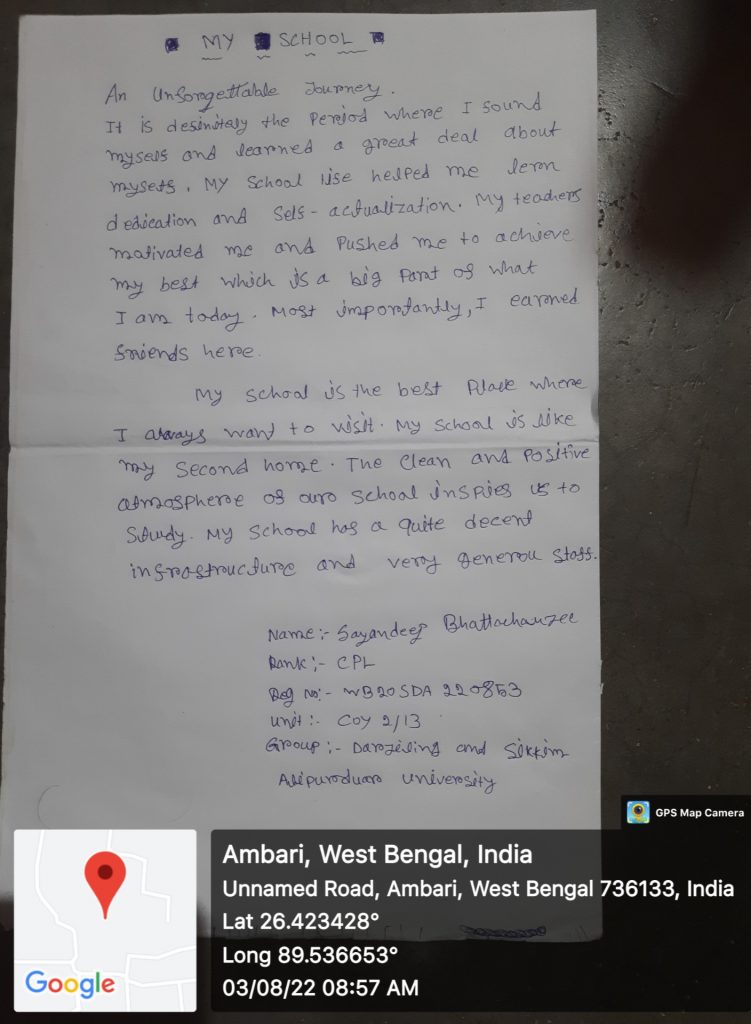 MY SCHOOL
An Unforgettable Journey.
It is definitely the Period where I found
myself and learned a great deal about
myself. MY School life helped me lern
dedication and Self-actualization. My teachers
motivated me and Pushed me to achieve
my best which is a big Part of what
I am today. Most importantly, I earned
friends here.
My School is the best Place where
I always want to visit. My School is like
my Second home. The Clean and Positive
atmosphere of our School inspies us to
Study. My School has a quite decent
infrastructure and very generou Staff.
Name:- Sayandeep Bhattacharjee
Rank:- CPL
Reg No:- WB20SDA 220853
Unit:- COY 2/13
Group:- Darjiling and Sikkim
Alipurduar University
GPS Map Camera
Ambari, West Bengal, India
Unnamed Road, Ambari, West Bengal 736133, India
Lat 26.423428°
Long 89.536653°
03/08/22 08:57 AM
Google